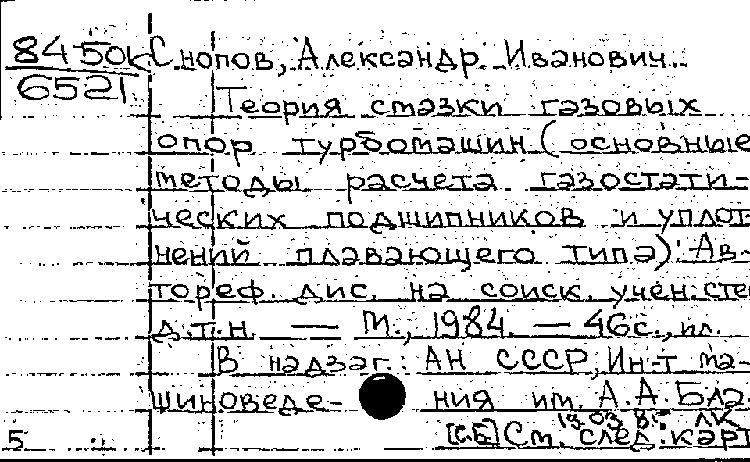 84 50к Снопов, Александр Иванович.
6521 Теория смазки газовых
опор турбомашин (основные
методы расчета газостати-
ческих подшипников и уплот
нений плавающего типа): Ав-
тореф. дис. на соиск. учен. сте
д.т.н. — М., 1984. — 46с., ил.
В надзаг.: АН СССР, Ин-т ма-
шиноведе- ния им. А.А. Бла-
19 03 85 ЛК
5 [С.Б] См. след. карт